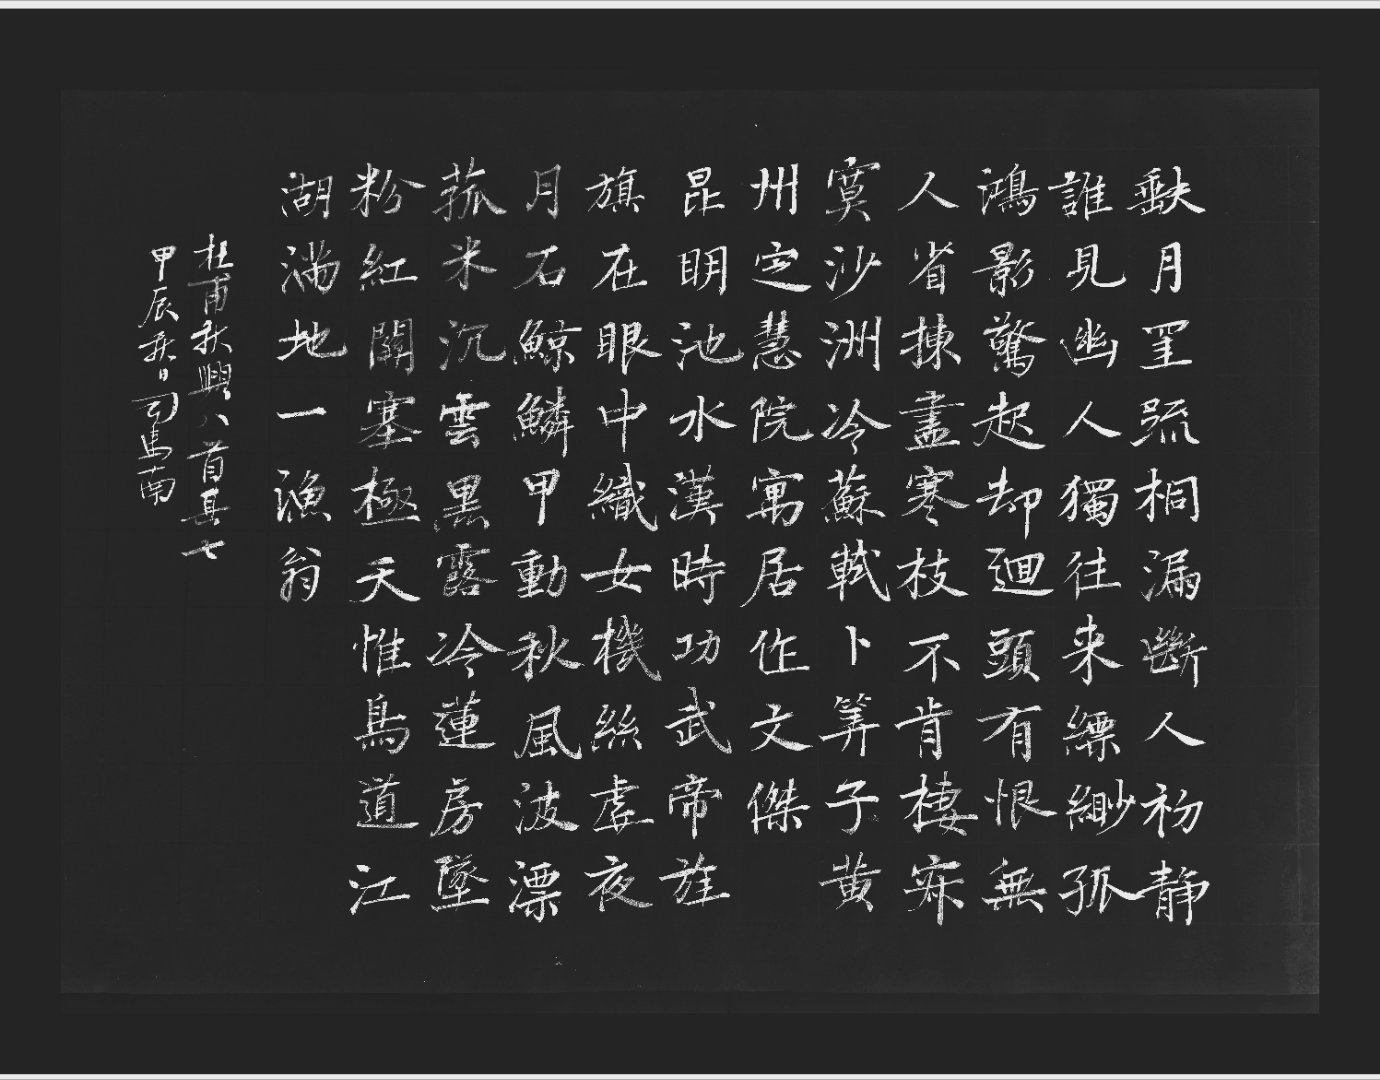 缺月罣疏桐漏斷人初靜
誰見幽人獨往来縹緲孤
鴻影驚起却迴頭有恨無
人省揀盡寒枝不肯棲寂
寞沙洲冷蘇軾卜算子黄
州定慧院寓居作文傑
昆明池水漢時功武帝旌
旗在眼中織女機絲虛夜
月石鯨鱗甲動秋風波漂
菰米沉雲黑露冷蓮房墜
粉紅關塞極天惟鳥道江
湖滿地一漁翁
杜甫秋興八首其七
甲辰秋日司馬南